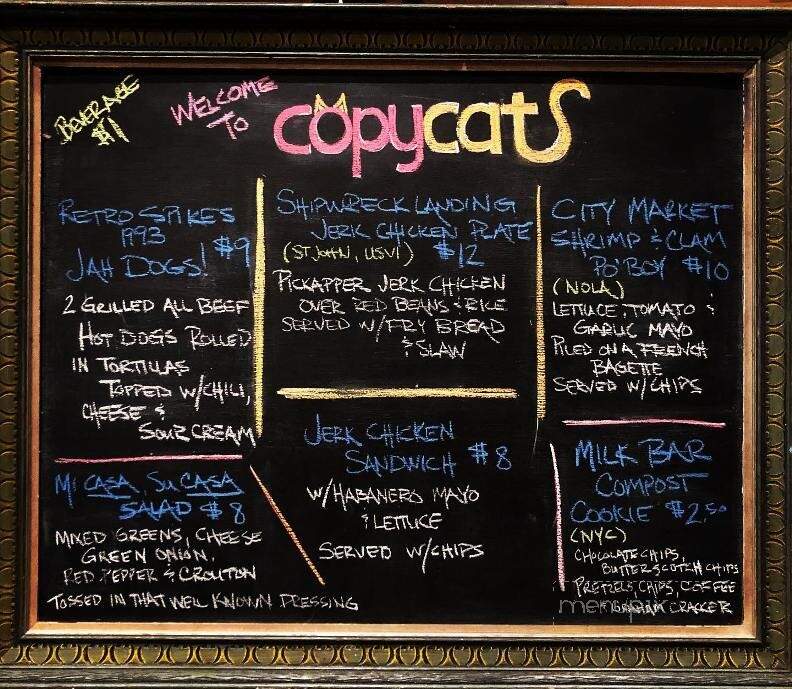 BEVERAGE
$1
WELCOME
TO
copycats
RETRO SPIKES
1993
JAH DOGS! $9
2 GRILLED ALL BEEF
HOT DOGS ROLLED
IN TORTILLAS
TOPPED W/CHILI,
CHEESE &
SOUR CREAM
MI CASA, SU CASA
SALAD $8
MIXED GREENS, CHEESE
GREEN ONION,
RED PEPPER & CROUTON
TOSSED IN THAT WELL KNOWN DRESSING
SHIPWRECK LANDING
JERK CHICKEN PLATE
(ST JOHN, USVI) $12
PICKAPPER JERK CHICKEN
OVER RED BEANS & RICE
SERVED W/FRY BREAD
& SLAW
JERK CHICKEN
SANDWICH $8
W/HABANERO MAYO
& LETTUCE
SERVED W/CHIPS
CITY MARKET
SHRIMP & CLAM
PO'BOY $10
(NOLA)
LETTUCE, TOMATO &
GARLIC MAYO
PILED ON A FRENCH
BAGETTE
SERVED W/CHIPS
MILK BAR
COMPOST
COOKIE $2.50
(NYC)
CHOCOLATE CHIPS,
BUTTERSCOTCH CHIPS
PRETZELS, CHIPS, COFFEE
GRAHAM CRACKER